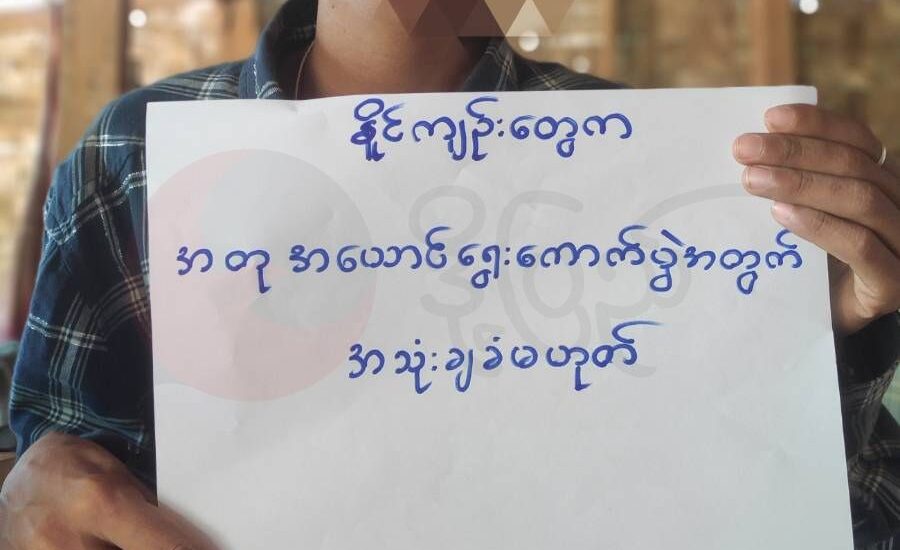 နိူင်ကျဉ်းတွေက
အတု အယောင်ရွေးကောက်ပွဲအတွက်
အသုံးချခံမဟုတ်